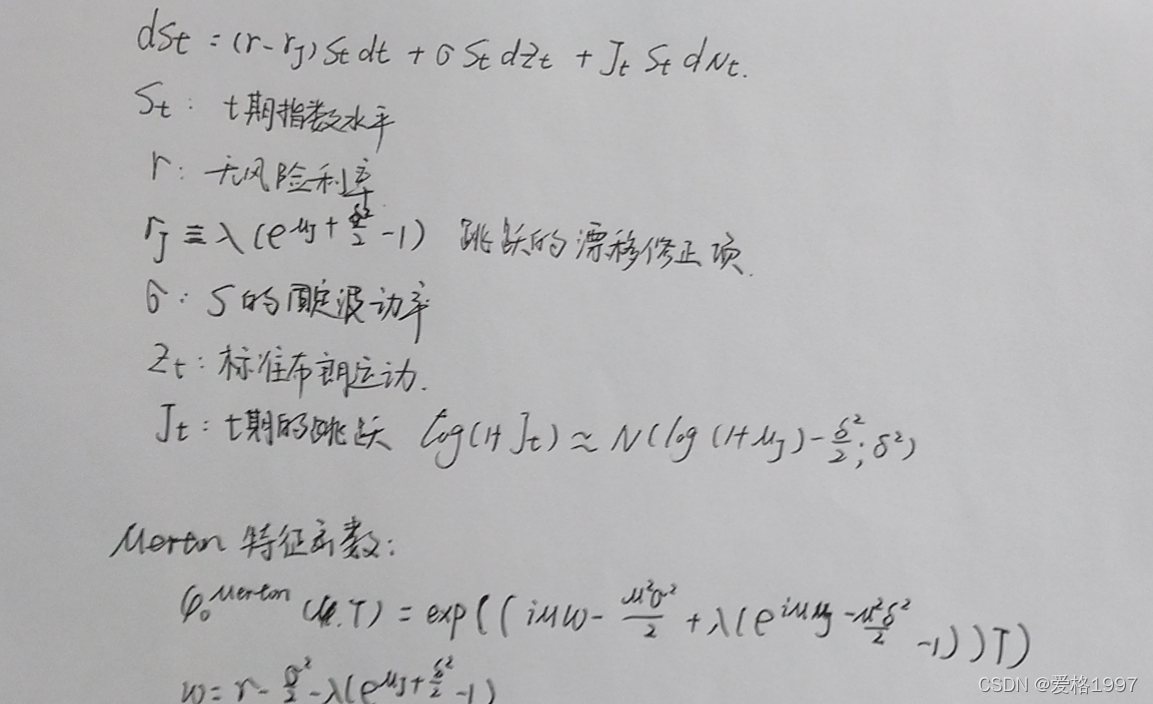 dSt = (r-rJ)St dt + σ St dZt + Jt St dNt.
St: t期指数水平
r: 无风险利率
rJ ≡ λ(e^(μJ + δ²/2) -1) 跳跃的漂移修正项.
σ: S的固定波动率
Zt: 标准布朗运动.
Jt: t期的跳跃 log(1+Jt) ≈ N(log(1+μJ) - δ²/2; δ²)
Merton 特征函数:
φ₀^Merton (u.T) = exp((iuω - u²σ²/2 + λ(e^(iuμJ - u²δ²/2) -1))T)
ω = r - σ²/2 - λ(e^(μJ + δ²/2) -1)
CSDN @爱格1997